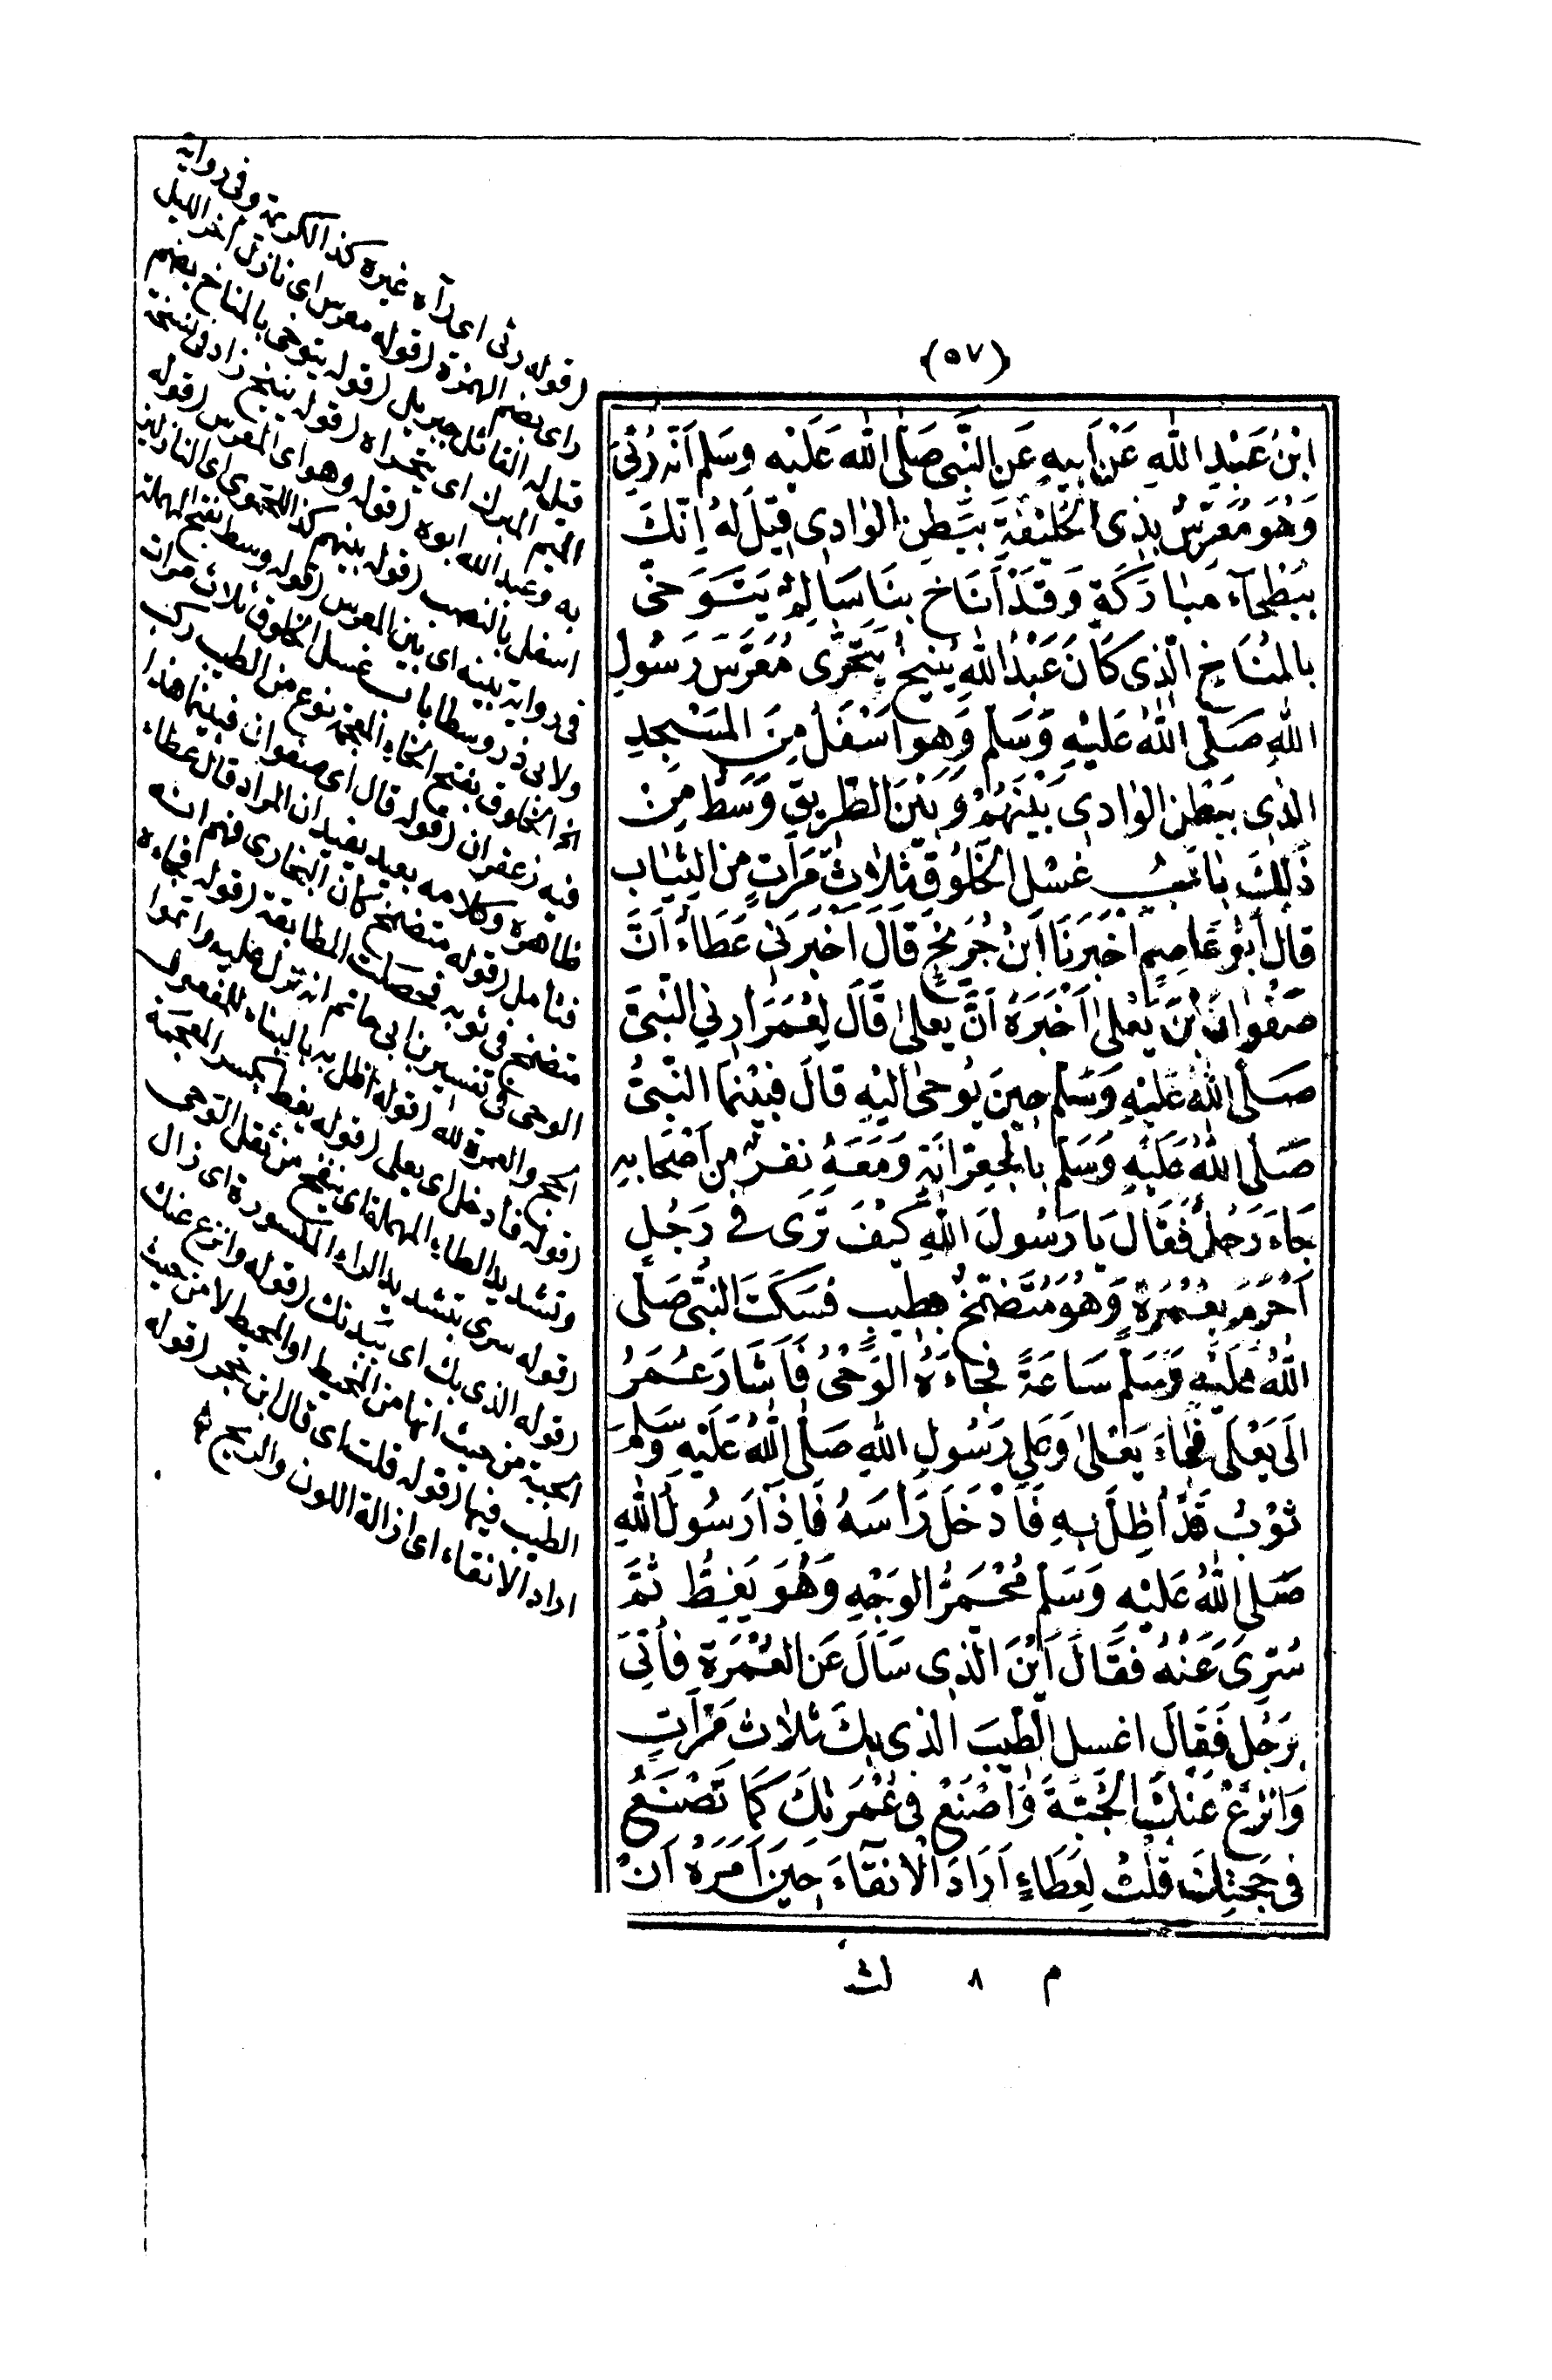 (٥٧)
ابْنُ عَبْدِ اللهِ عَنْ اَبِيهِ عَنِ النَّبِى صَلَّى الله عَلَيْه وسَلم اَنّه رُئِىَ
وَهُوَ مُعَرِّسٌ بِذِى الحُلَيْفَةِ بِبَطْنِ الوٰادِى قِيلَ لَهُ اِنّكَ
بِبَطْحَآءَ مبَارَكَةٍ وَقَدْ اَنَاخَ بِنَا سَالِمٌ يَتَوَخّى
بالمُنَاخِ الّذِى كَانَ عَبْدُ اللهِ يُنِيخُ يَتَحَرَّى مُعَرَّسَ رَسُولِ
اللهِ صَلّى اللهُ عَلَيْهِ وَسَلّم وَهو اَسْفَلُ مِنَ المَسْجِدِ
الذِى بِبَطْنِ الوٰادِى بَيْنَهُمْ وَبَيْنَ الطّرِيقِ وَسَطٌ مِنْ
ذٰلِكَ بَابُ غَسْلِ الخَلُوقِ ثَلاثَ مَرَّاتٍ مِنَ الثِّيَاب
قالَ اَبُو عَاصِمٍ اَخْبَرَنَا ابْنُ جُرَيْجٍ قالَ اَخْبَرَنِى عَطَاءٌ اَنَّ
صَفْوانَ بْنَ يَعْلىٰ اَخْبَرَهُ اَنَّ يعلىٰ قَالَ لِعُمَرَ اَرِنِي النَّبِىَّ
صَلّى اللهُ عَلَيْهِ وَسَلّم حِينَ يُوحىٰ اِلَيْهِ قالَ فَبَيْنَمَا النّبِىُّ
صَلى اللهُ عَلَيْهِ وَسَلم بِالْجِعِرّانَةِ وَمَعَهُ نفَرٌ مِن اَصْحَابِهِ
جَاءَ رَجُلٌ فَقَالَ يَا رَسُولَ اللهِ كَيْفَ تَرَى فِى رَجُلٍ
اَحْرَمَ بِعُمْرَةٍ وَهُوَ مُتَضَمِّخٌ بِطِيبٍ فَسَكَتَ النَّبِىُّ صَلّى
اللهُ عَلَيْهِ وَسَلّم سَاعَةً فَجَاءَهُ الوَحْىُ فَاَشَارَ عُمَرُ
اِلَى يَعْلَى فَجَاءَ يَعْلىٰ وَعَلى رَسُولِ اللهِ صَلّى اللهُ عَلَيْهِ وسَلم
ثَوْبٌ قَدْ اُظِلَّ بِهِ فَاَدْخَلَ رَاْسَهُ فَاِذَا رَسُولُ اللهِ
صَلى اللهُ عَلَيْهِ وَسَلم مُحْمَرُّ الوَجْهِ وَهُوَ يَغِطُّ ثُمَّ
سُرِّىَ عَنْهُ فَقَالَ اَيْنَ الّذِى سَاَلَ عَنِ العُمْرَةِ فَاُتِىَ
بِرَجُلٍ فَقَالَ اغسِلِ الطّيبَ الّذِى بِكَ ثَلاث مَرّاتٍ
وَانْزِعْ عَنْكَ الجُبَّةَ وَاصْنَعْ فِى عُمْرَتِكَ كَمَا تَصْنَعُ
فِى حَجّتِكَ قُلْتُ لِعَطَاءٍ اَرَادَ الْاِنْقَآءَ حِينَ اَمَرَهُ اَنْ
(قوله رئى اى رآه غيره كذا لكريمة وفى رواية
راى بضم الهمزة (قوله معرس اى نازل آخر الليل
قيل له القائل جبريل (قوله يتوخى بالمناخ بضم
الميم المبرك اى يتحراه (قوله ينيخ زاد فى نسخة
به وعبد الله ابوه (قوله وهو اى المعرس (قوله
اسفل بالنصب (قوله بينهم كذا للحموى اى النازلين
فى رواية بينه اى بين المعرس (قوله وسط بفتح المهملة
ولابى ذر وسطا باب غسل الخلوق ثلاث مرات
الخ الخلوق بفتح الخاء المعجمة نوع من الطيب ركب
فيه زعفران (قوله قال اى صفوان فبينما هذا
ظاهره وكلامه بعيد يفيد ان المراد قال عطاء
فتأمل (قوله متضمخ كان البخارى فهم انه
متضمخ فى ثوبه فحصلت المطابقة (قوله فجاءه
الوحى فى تفسير ابن ابى حاتم انه نزل عليه واتموا
الحج والعمرة لله (قوله اظل به بالبناء للمفعول
(قوله فأدخل اى يعلى (قوله يغط بكسر المعجمة
وتشديد الطاء المهملة اى ينفخ من ثقل الوحى
(قوله سرى بتشديد الراء المكسورة اى زال
(قوله الذى بك اى ببدنك (قوله وانزع عنك
الجبة من حيث انها من المخيط او المحيط لا من حيث
الطيب فيها (قوله قلت اى قال ابن جريج (قوله
اراد الانقاء اى ازالة اللون والريح
م ٨ لث